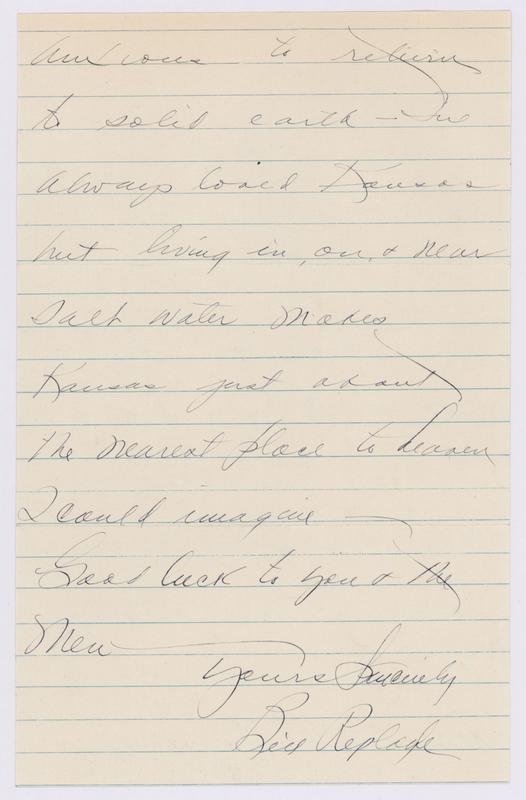 anxious to return
to solid earth — I've
always loved Kansas
but living in, on, & near
salt water makes
Kansas just about
the nearest place to heaven
I could imagine —
Good luck to you & the
Men —
Yours Sincerely
Bill Replogle